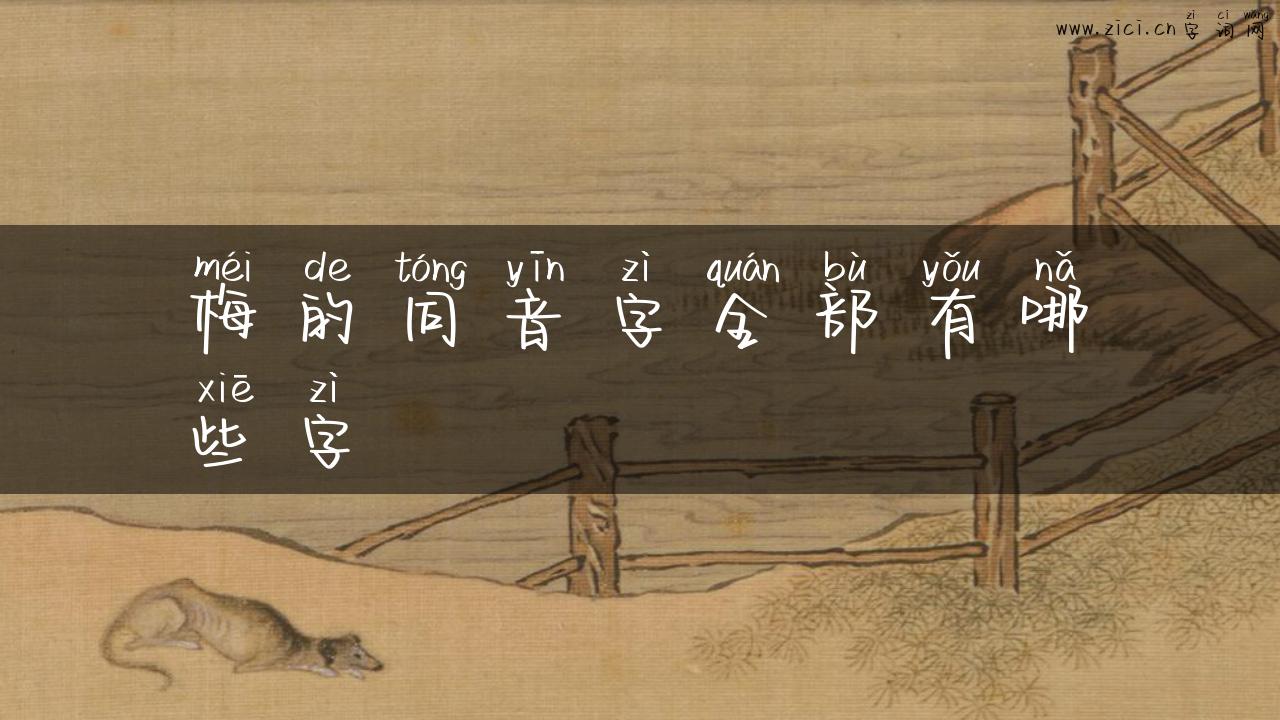 zì cí wǎng
www.zici.cn字词网
méi de tóng yīn zì quán bù yǒu nǎ
梅的同音字全部有哪
xiē zì
些字